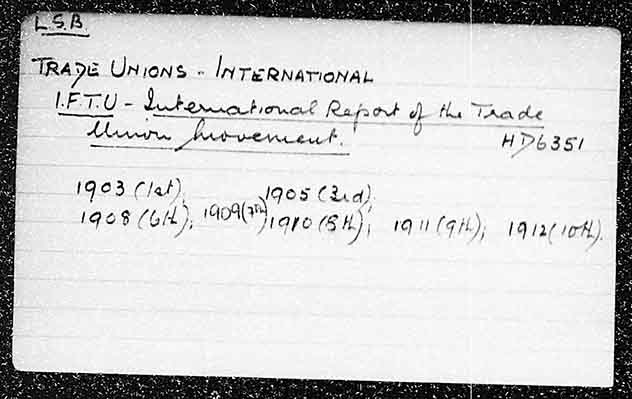 L.S.B.
TRADE UNIONS - INTERNATIONAL
I.F.T.U - International Report of the Trade
Union Movement. HD6351
1903 (1st), 1905 (3rd),
1908 (6th); 1909 (7th) 1910 (8th); 1911 (9th); 1912 (10th).